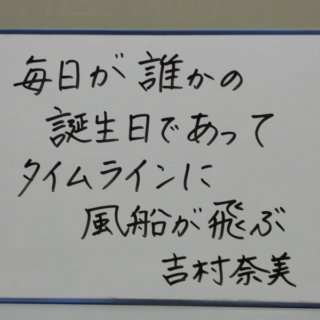 毎日が誰かの
誕生日であって
タイムラインに
風船が飛ぶ
吉村奈美